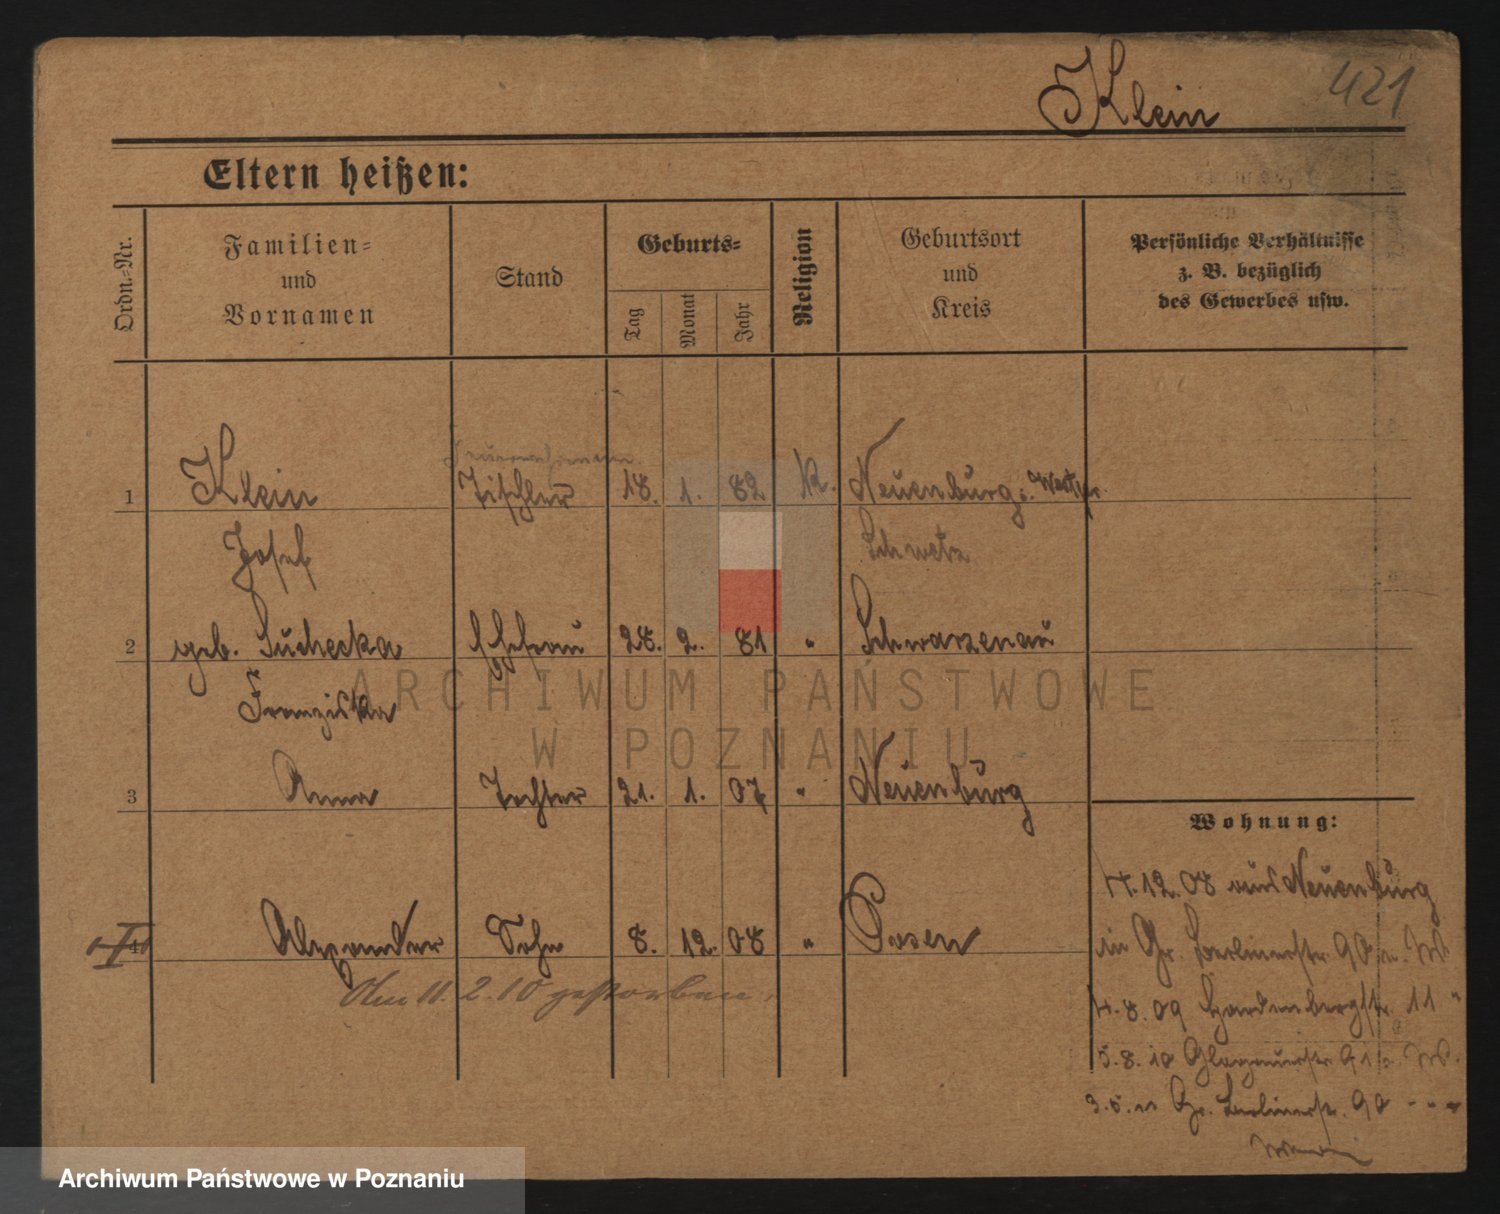 Klein 421
Eltern heißen:
Ordn.-Nr.
Familien-
und
Vornamen
Stand
Geburts-
Tag
Monat
Jahr
Religion
Geburtsort
und
Kreis
Persönliche Verhältnisse
z. B. bezüglich
des Gewerbes usw.
1 Klein Tischler 18. 1. 82 K. Neuenburg Westpr.
Josef Schwetz
2 geb. Suchecka Ehefrau 28. 2. 81 " Schwarzenau
Franziska
3 Anna Tochter 21. 1. 07 " Neuenburg
Wohnung:
4.12.08 aus Neuenburg
4 Alexander Sohn 8. 12. 08 " Posen
in Gr. Berlinerstr. 90
Am 11. 2. 10 gestorben.
4.8.09 Hardenbergstr. 11 "
5.8.10 Glogauerstr. 91
3.5.11 Gr. Berlinerstr. 90
ARCHIWUM PAŃSTWOWE
W POZNANIU
Archiwum Państwowe w Poznaniu